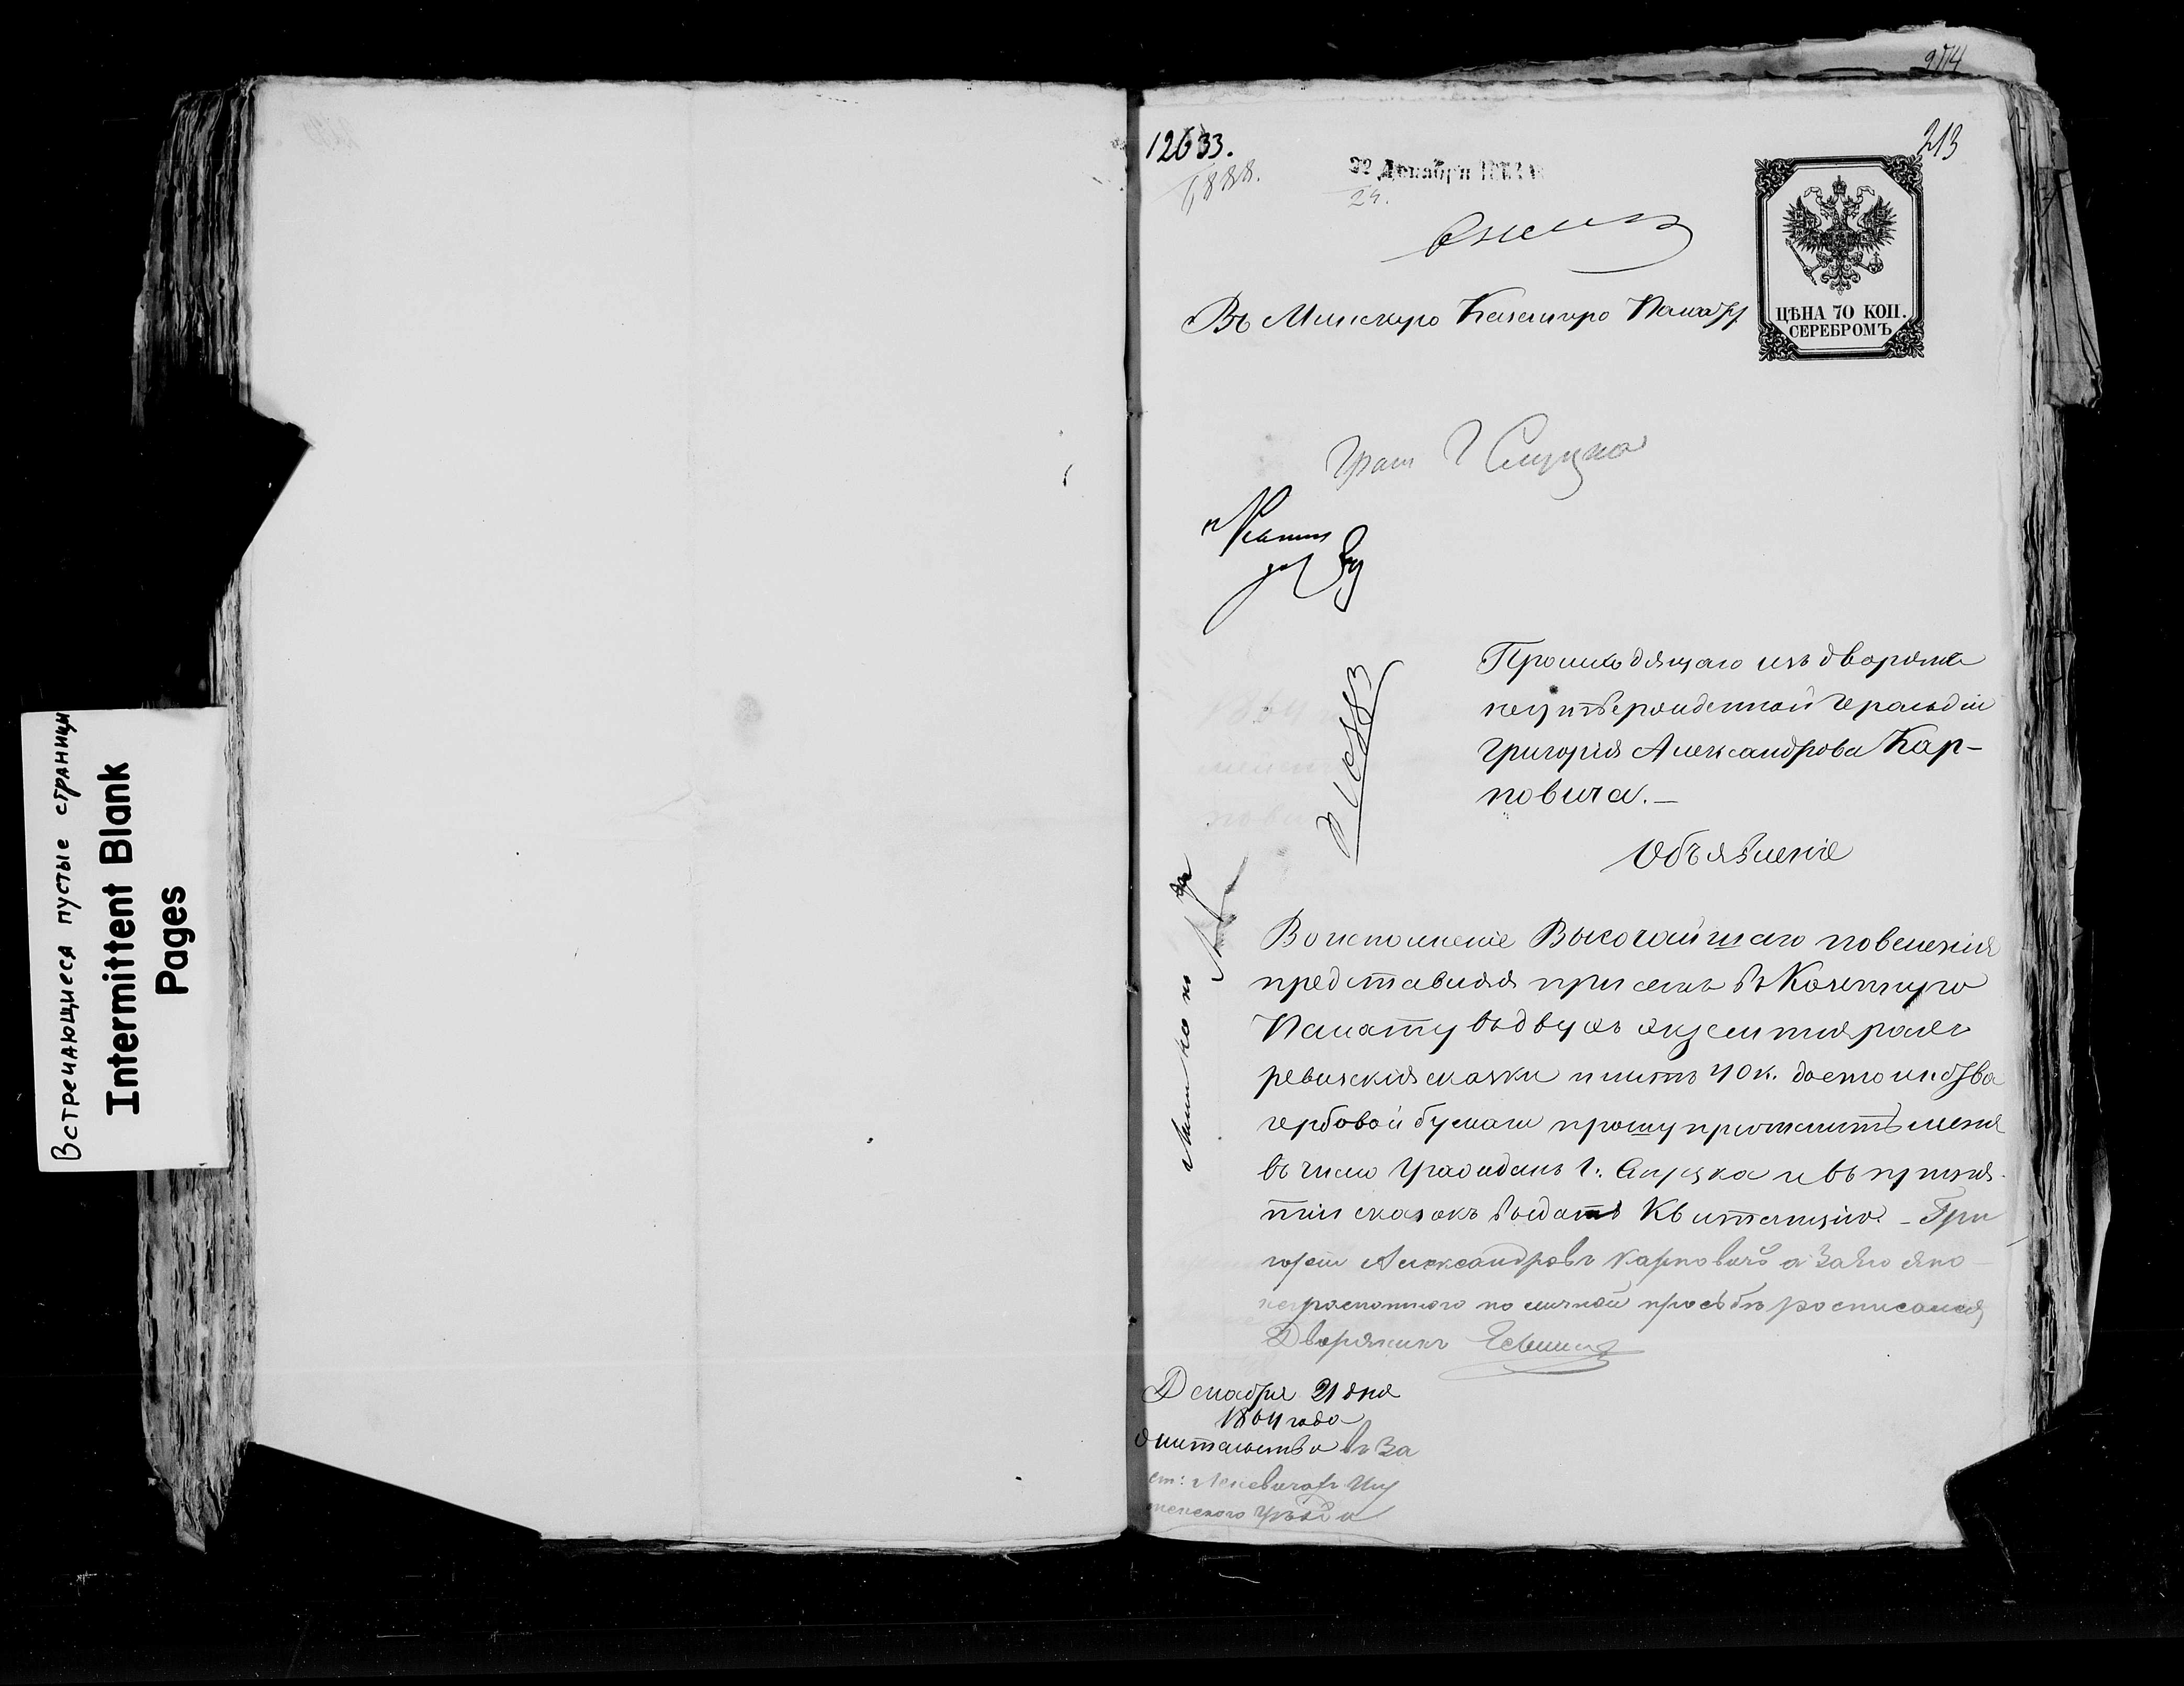 Встречающиеся пустые страницы
Intermittent Blank
Pages
214
213
12633.
1888.
22 Декабря
24.
ЦѢНА 70 КОП.
СЕРЕБРОМЪ
Въ Минскую Казенную Палату
Граж Г Слуцка
Происходящаго изъ дворянъ
неутвержденной Герольдіи
Григорія Александрова Кар-
повича.—
Объявленіе
Во исполненіе Высочайшаго повеленія
представляя при семъ въ Казенную
Палату въ двухъ экземплярахъ
ревизскія сказки и листъ 70 к. достоинства
гербовой бумаги прошу причислить меня
въ число Гражданъ г. Слуцка и въ приня-
тіи сказокъ выдать Квитанцію. — Гри
горій Александровъ Карповичъ а за него яко
неграмотного по личной прозьбѣ росписался
Дворянинъ
Декабря 21 дня
1864 года
жительство въ за
ст: Игу
менского уѣзда